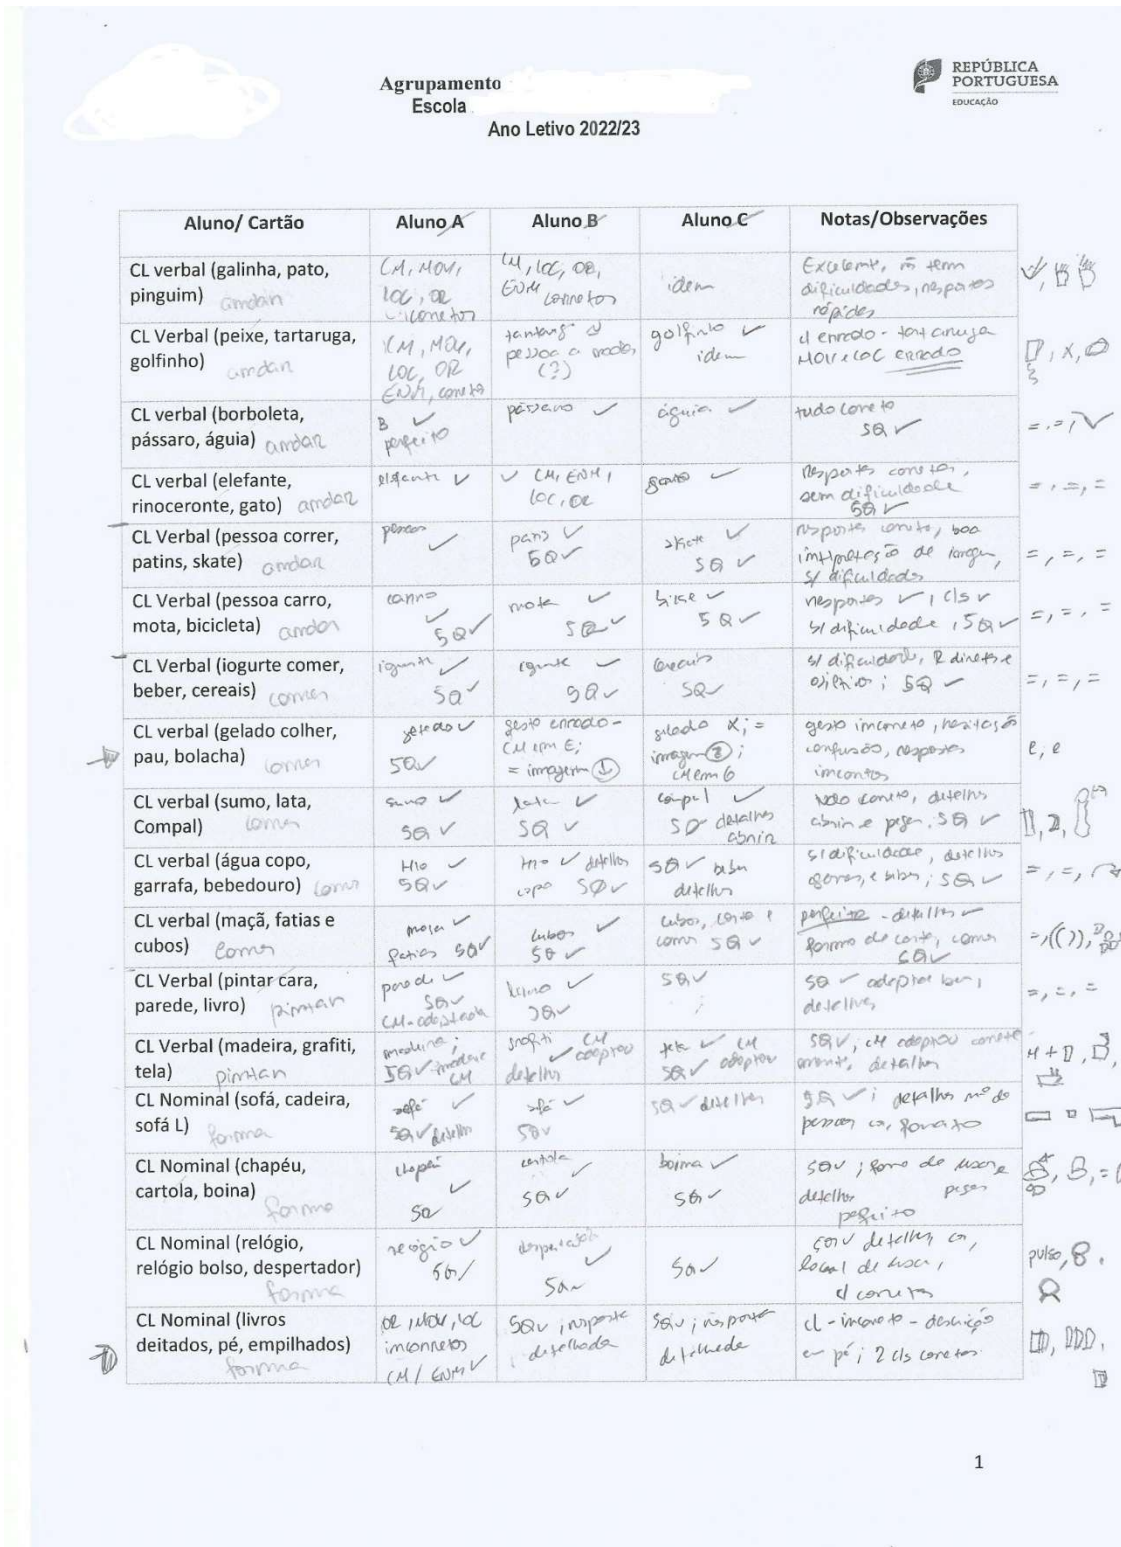 Agrupamento
Escola
Ano Letivo 2022/23
REPÚBLICA
PORTUGUESA
EDUCAÇÃO
Aluno/ Cartão Aluno A Aluno B Aluno C Notas/Observações
CL verbal (galinha, pato,
pinguim) andar
CM, MOV,
LOC, OR
corretos
CM, LOC, OR,
ENM corretos
idem
Excelente, ñ tem
dificuldades, respostas
rápidas
CL Verbal (peixe, tartaruga,
golfinho) andar
CM, MOV,
LOC, OR
ENM, correto
pessoa a nadar
(?)
golfinho ✓
idem
cl errado - tartaruga
MOV e LOC errado
CL verbal (borboleta,
pássaro, águia) andar
B ✓
perfeito
pássaro ✓
águia ✓
tudo correto
5Q ✓
=, =,
CL verbal (elefante,
rinoceronte, gato) andar
elefante ✓
✓ CM, ENM,
LOC, OR
gato ✓
respostas corretas,
sem dificuldade
5Q ✓
=, =, =
CL Verbal (pessoa correr,
patins, skate) andar
✓
patins ✓
5Q ✓
skate ✓
5Q ✓
respostas corretas, boa
interpretação de imagem,
s/ dificuldades
=, =, =
CL Verbal (pessoa carro,
mota, bicicleta) andar
carro
✓
5Q ✓
mota ✓
5Q ✓
✓
5Q ✓
respostas ✓, cls ✓
s/ dificuldade, 5Q ✓
=, =, =
CL Verbal (iogurte comer,
beber, cereais) comer
iogurte ✓
5Q ✓
iogurte ✓
5Q ✓
cereais
5Q ✓
s/ dificuldade, R diretas e
5Q ✓
=, =, =
CL verbal (gelado colher,
pau, bolacha) comer
gelado ✓
5Q ✓
gesto errado -
CM em E;
= imagem ①
gelado X; =
imagem ②;
CM em 6
gesto incorreto, hesitação
confusão, respostas
incorretas
e, e
CL verbal (sumo, lata,
Compal) comer
sumo ✓
5Q ✓
lata ✓
5Q ✓
compal ✓
5Q detalhes
abrir
tudo correto, detalhes
abrir e pegar, 5Q ✓
CL verbal (água copo,
garrafa, bebedouro) comer
✓
5Q ✓
✓ detalhes
copo 5Q ✓
5Q ✓ beber
detalhes
s/ dificuldade, detalhes
5Q ✓
=, =,
CL verbal (maçã, fatias e
cubos) comer
maçã ✓
fatias 5Q ✓
cubos ✓
5Q ✓
cubos, corte e
comer 5Q ✓
perfeito - detalhes
forma de corte, comer
5Q ✓
CL Verbal (pintar cara,
parede, livro) pintar
parede ✓
5Q ✓
CM-adaptada
livro ✓
5Q ✓
5Q ✓
5Q ✓ adaptar bem,
detalhes
=, =, =
CL Verbal (madeira, grafiti,
tela) pintar
madeira;
5Q ✓
CM
grafiti CM
✓ adaptou
detalhes
tela ✓ CM
5Q ✓ adaptou
5Q ✓, CM adaptou correta
mente, detalhes
CL Nominal (sofá, cadeira,
sofá L) forma
sofá ✓
5Q ✓ detalhes
sofá ✓
5Q ✓
5Q ✓ detalhes
5Q ✓; detalhes nº de
pessoas formato
CL Nominal (chapéu,
cartola, boina) forma
chapéu
✓
5Q
cartola
✓
5Q ✓
boina ✓
5Q ✓
5Q ✓; forma de usar e
detalhes pegar
perfeito
CL Nominal (relógio,
relógio bolso, despertador) forma
relógio ✓
5Q ✓
despertador
✓
5Q ✓
5Q ✓
5Q ✓ detalhes
local de usar,
cl corretos
pulso,
CL Nominal (livros
deitados, pé, empilhados) forma
OR, MOV, LOC
incorretos
CM / ENM ✓
5Q ✓; resposta
detalhada
5Q ✓; resposta
detalhada
cl - incorreto - descrição
em pé; 2 cls corretos
1